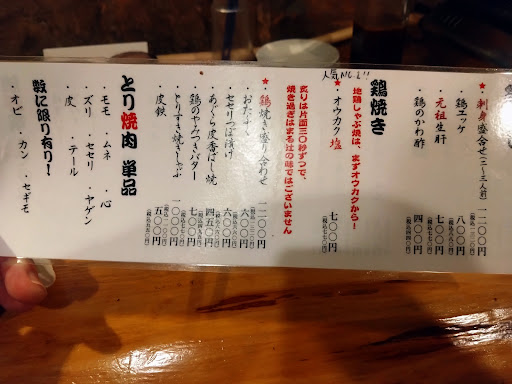 ★刺身盛合せ(二〜三人前) 一二〇〇円
・鶏ユッケ 八〇〇円
・元祖生肝 七〇〇円
・鶏のかわ酢 四〇〇円
鶏焼き 人気No.1!!
地鶏しゃぶ焼は、まずオウカクから!
★オウカク塩 七〇〇円
炙りは片面三〇秒ずつで、
焼き過ぎはまる辻の味ではございません
★鶏焼き盛り合わせ 一二〇〇円
・おたぐり 六〇〇円
・セセリつぼ漬け 六〇〇円
・あぐら皮香ばし焼 四五〇円
・鶏のやみつきバター 七〇〇円
・とりすき焼きしゃぶ 一〇〇〇円
・皮鉄 五〇〇円
とり焼肉 単品
・モモ ・ムネ ・心
・ズリ ・セセリ ・ヤゲン
・皮 ・テール
数に限り有り!
・オビ ・カン ・セギモ